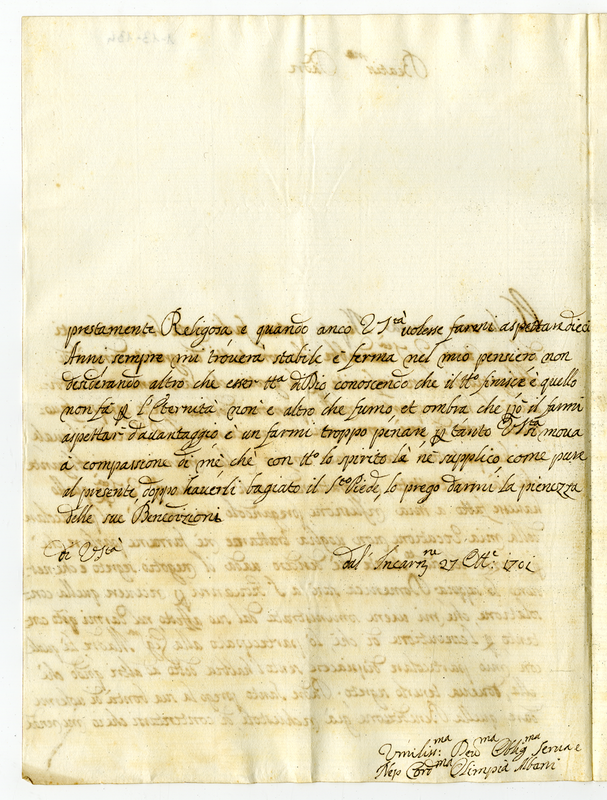 prestamente Religosa e quando anco V S.tà uolesse farmi aspettar dieci
Anni sempre mi trouera stabile e ferma nel mio pensiero non
disiderando altro che esser tt.a di Dio conoscendo che il tt.o finisce è quello
non fà p l'Eternità non è altro che fumo et ombra che p.ò il farmi
aspettar dauantaggio è un farmi troppo penare p tanto V S.tà moua
à compassione di mè chè con tt.o lo spirito la nè supplico come pure
al presente doppo hauerli bagiato il S.to Piede lo prego darmi la pienezza
delle sue Benedizioni
di V S.tà
dal' Incarn.ne 27 Ott.e 1701
Vmiliss.ma Deu.ma Oblig.ma Serua e
Nep Cord.ma Olimpia Albani